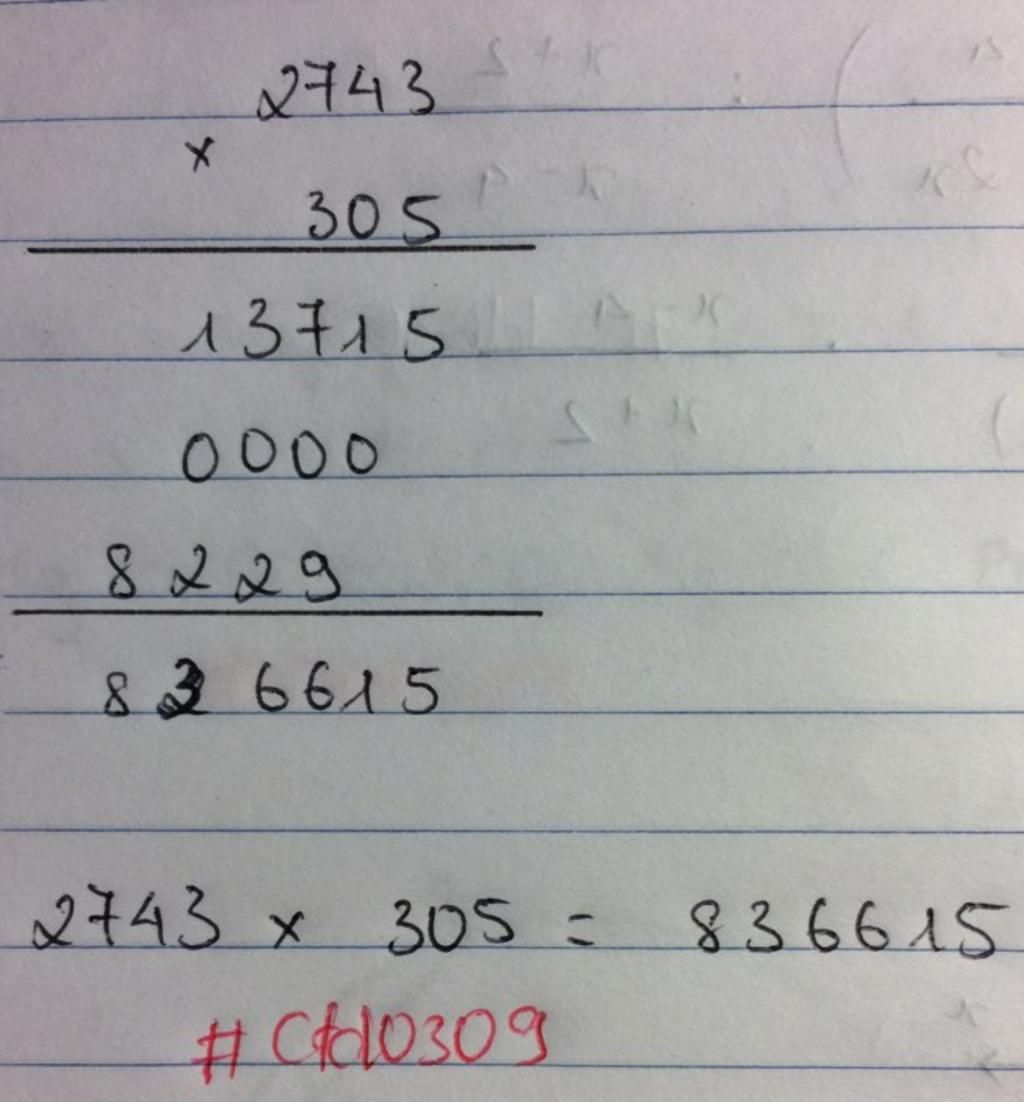 2743
×
305
13715
0000
8229
836615
2743 × 305 = 836615
#Ctd0309